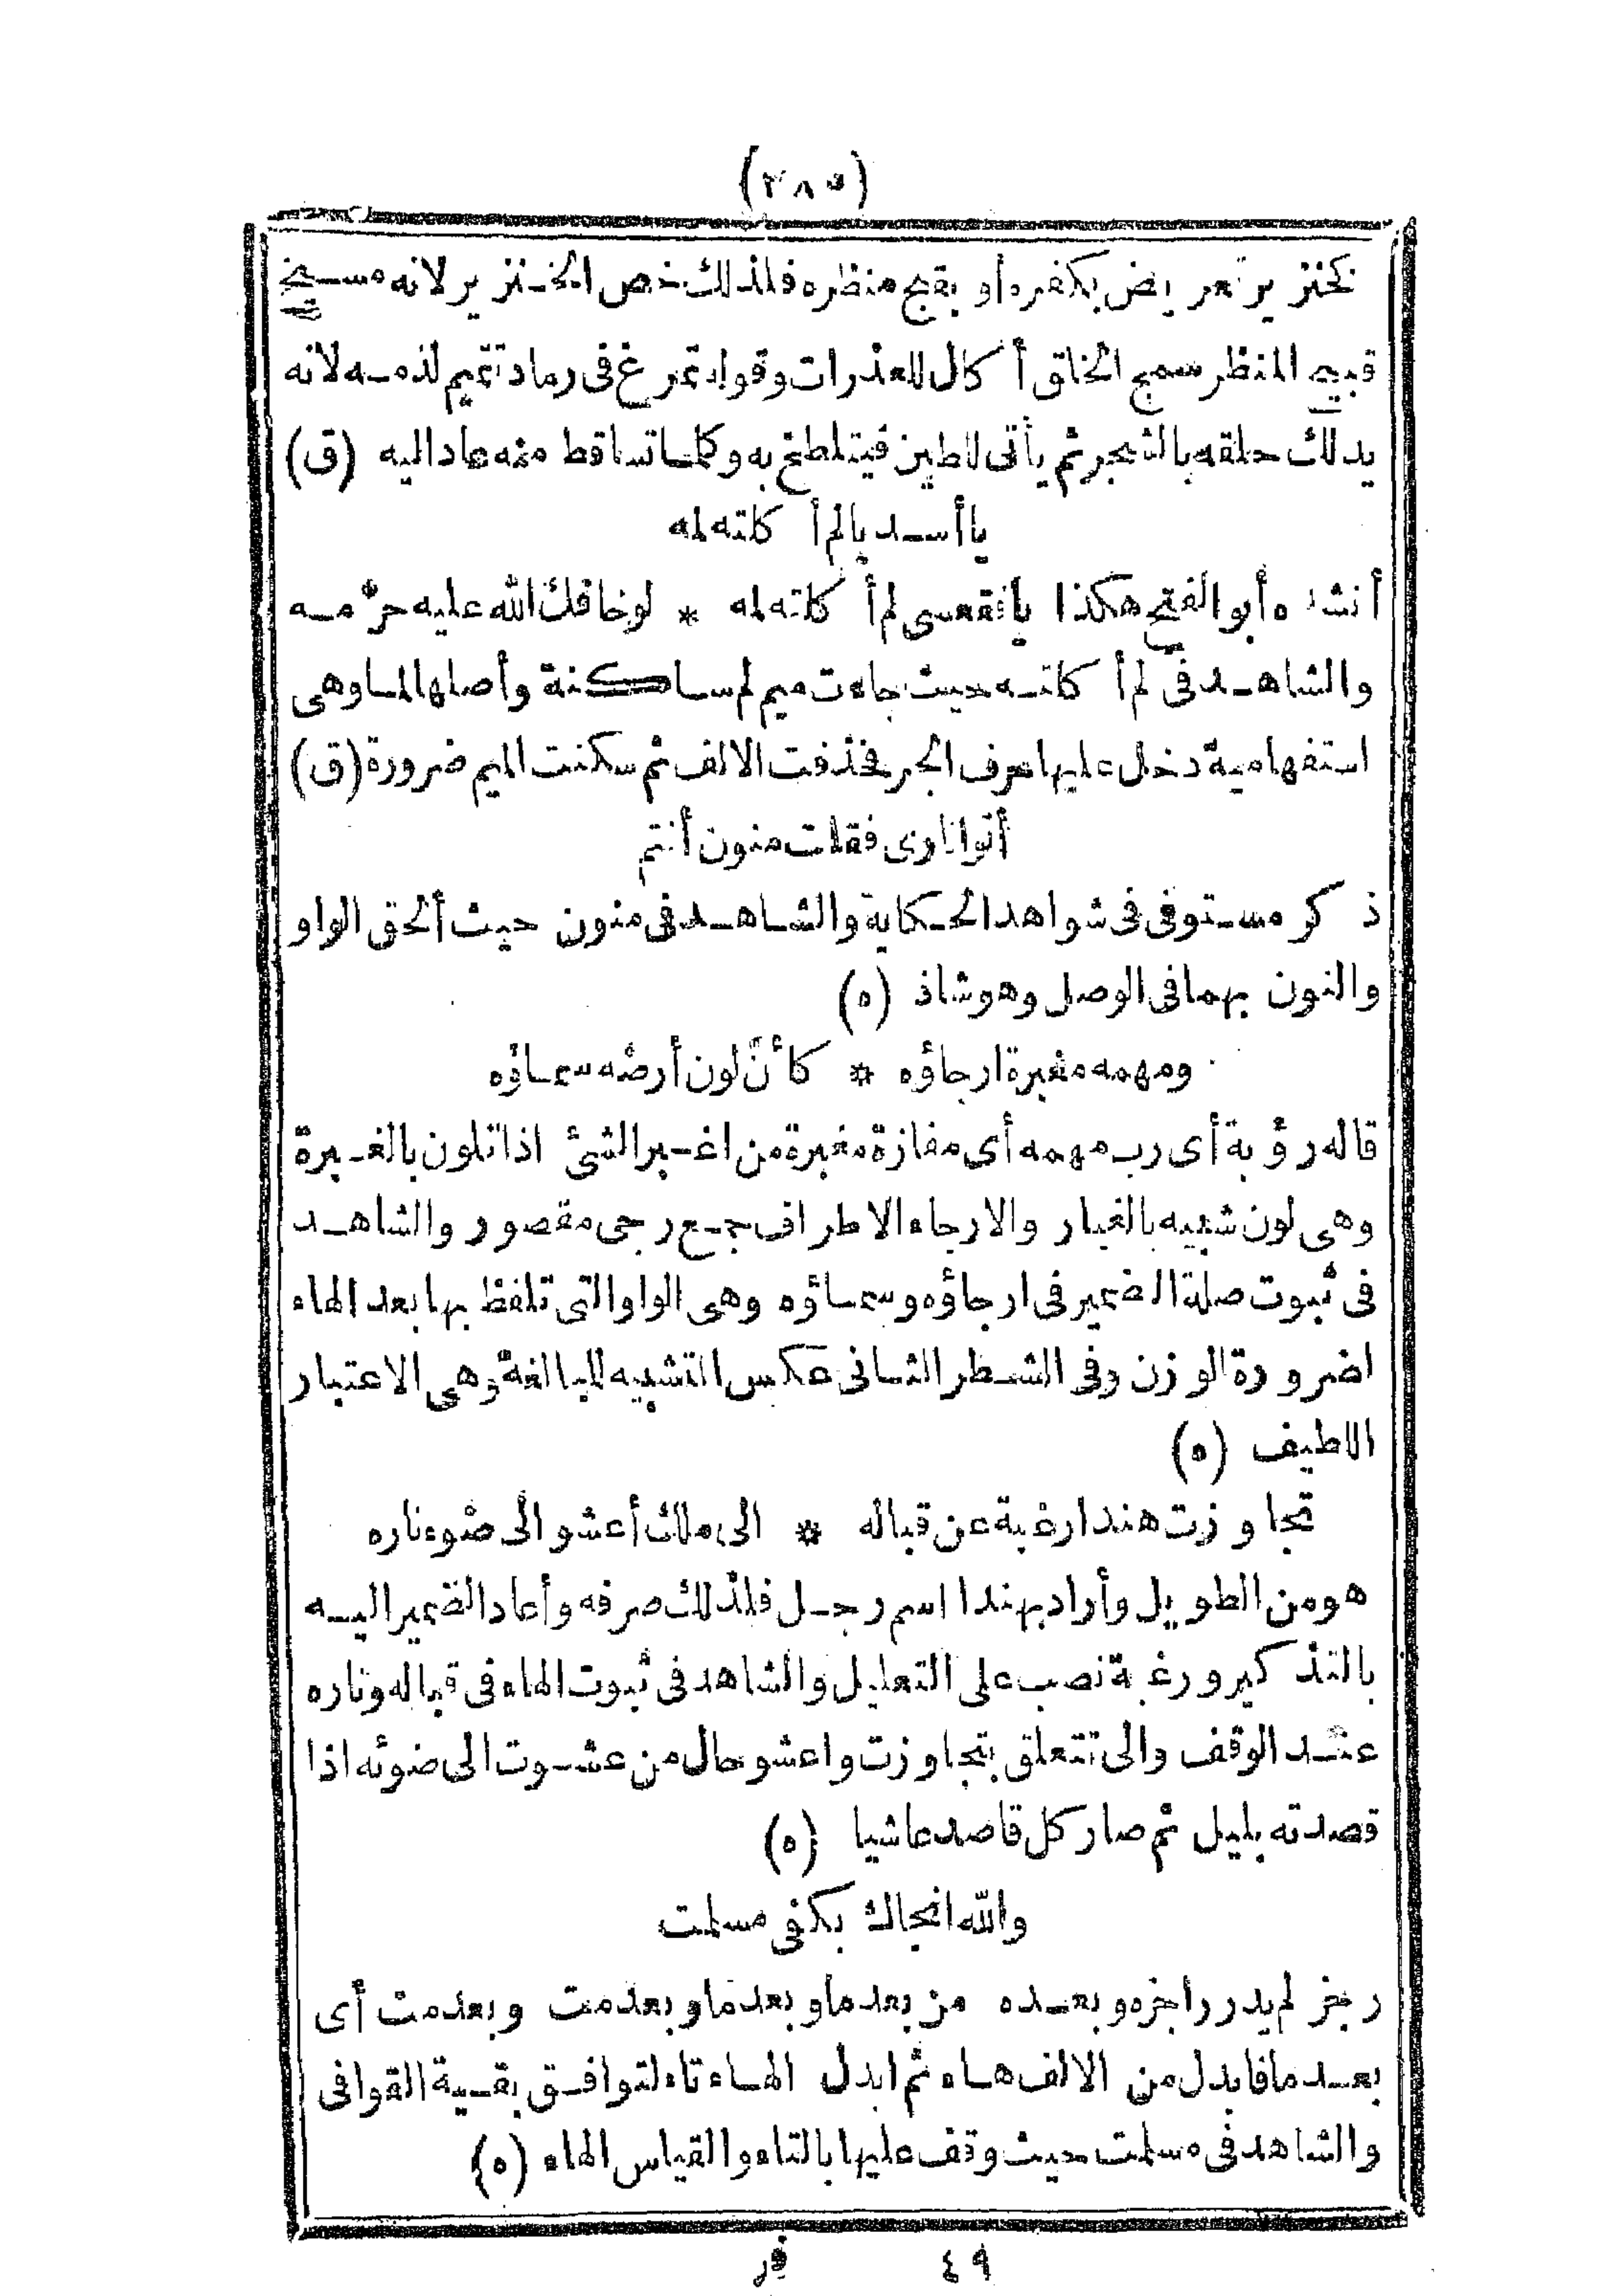 (٣٨٥)
كخنزير تعريض بكفره أو بقبح منظره فلذلك خص الخنزير لانه مسيخ
قبيح المنظر سمج الخلق أكال للعذرات وقوله تمرغ فى رماد تتميم لذمه لانه
يدلك حلقه بالشجر ثم يأتى للطين فيتلطخ به وكلما تساقط منه عاد اليه (ق)
يا أسديا لم أكلته لمه
أنشده أبو الفتح هكذا يا فقعسى لم أكلته لمه * لو خافك الله عليه حرّمه
والشاهد فى لم أكلته حيث جاءت ميم لم ساكنة وأصلها لما وهى
استفهامية دخل عليها حرف الجر فحذفت الالف ثم سكنت الميم ضرورة (ق)
أتوا نارى فقلت منون أنتم
ذكر مستوفى فى شواهد الحكاية والشاهد فى منون حيث ألحق الواو
والنون بهما فى الوصل وهو شاذ (ه)
ومهمه مغبرة ارجاؤه * كأنّ لون أرضه سماؤه
قاله رؤبة أى رب مهمه أى مفازة مغبرة من اغبر الشئ اذا تلون بالغبرة
وهى لون شبيه بالغبار والارجاء الاطراف جمع رجى مقصور والشاهد
فى ثبوت صلة الضمير فى ارجاؤه وسماؤه وهى الواو التى تلفظ بها بعد الهاء
لضرورة الوزن وفى الشطر الثانى عكس التشبيه للمبالغة وهى الاعتبار
اللطيف (ه)
تجاوزت هندا رغبة عن قتاله * الى ملك أعشو الى ضوء ناره
هو من الطويل وأراد بهندا اسم رجل فلذلك صرفه وأعاد الضمير اليه
بالتذكير ورغبة نصب على التعليل والشاهد فى ثبوت الهاء فى قتاله وناره
عند الوقف والى تتعلق بتجاوزت واعشو حال من عشوت الى ضوئه اذا
قصدته بليل ثم صار كل قاصد عاشيا (ه)
والله انجاك بكفى مسلمت
رجز لم يدر راجزه وبعده من بعدما وبعدما وبعدمت وبعدمت أى
بعدما فابدل من الالف هاء ثم ابدل الهاء تاء لتوافق بقية القوافى
والشاهد فى مسلمت حيث وقف عليها بالتاء والقياس الهاء (ه)
٤٩